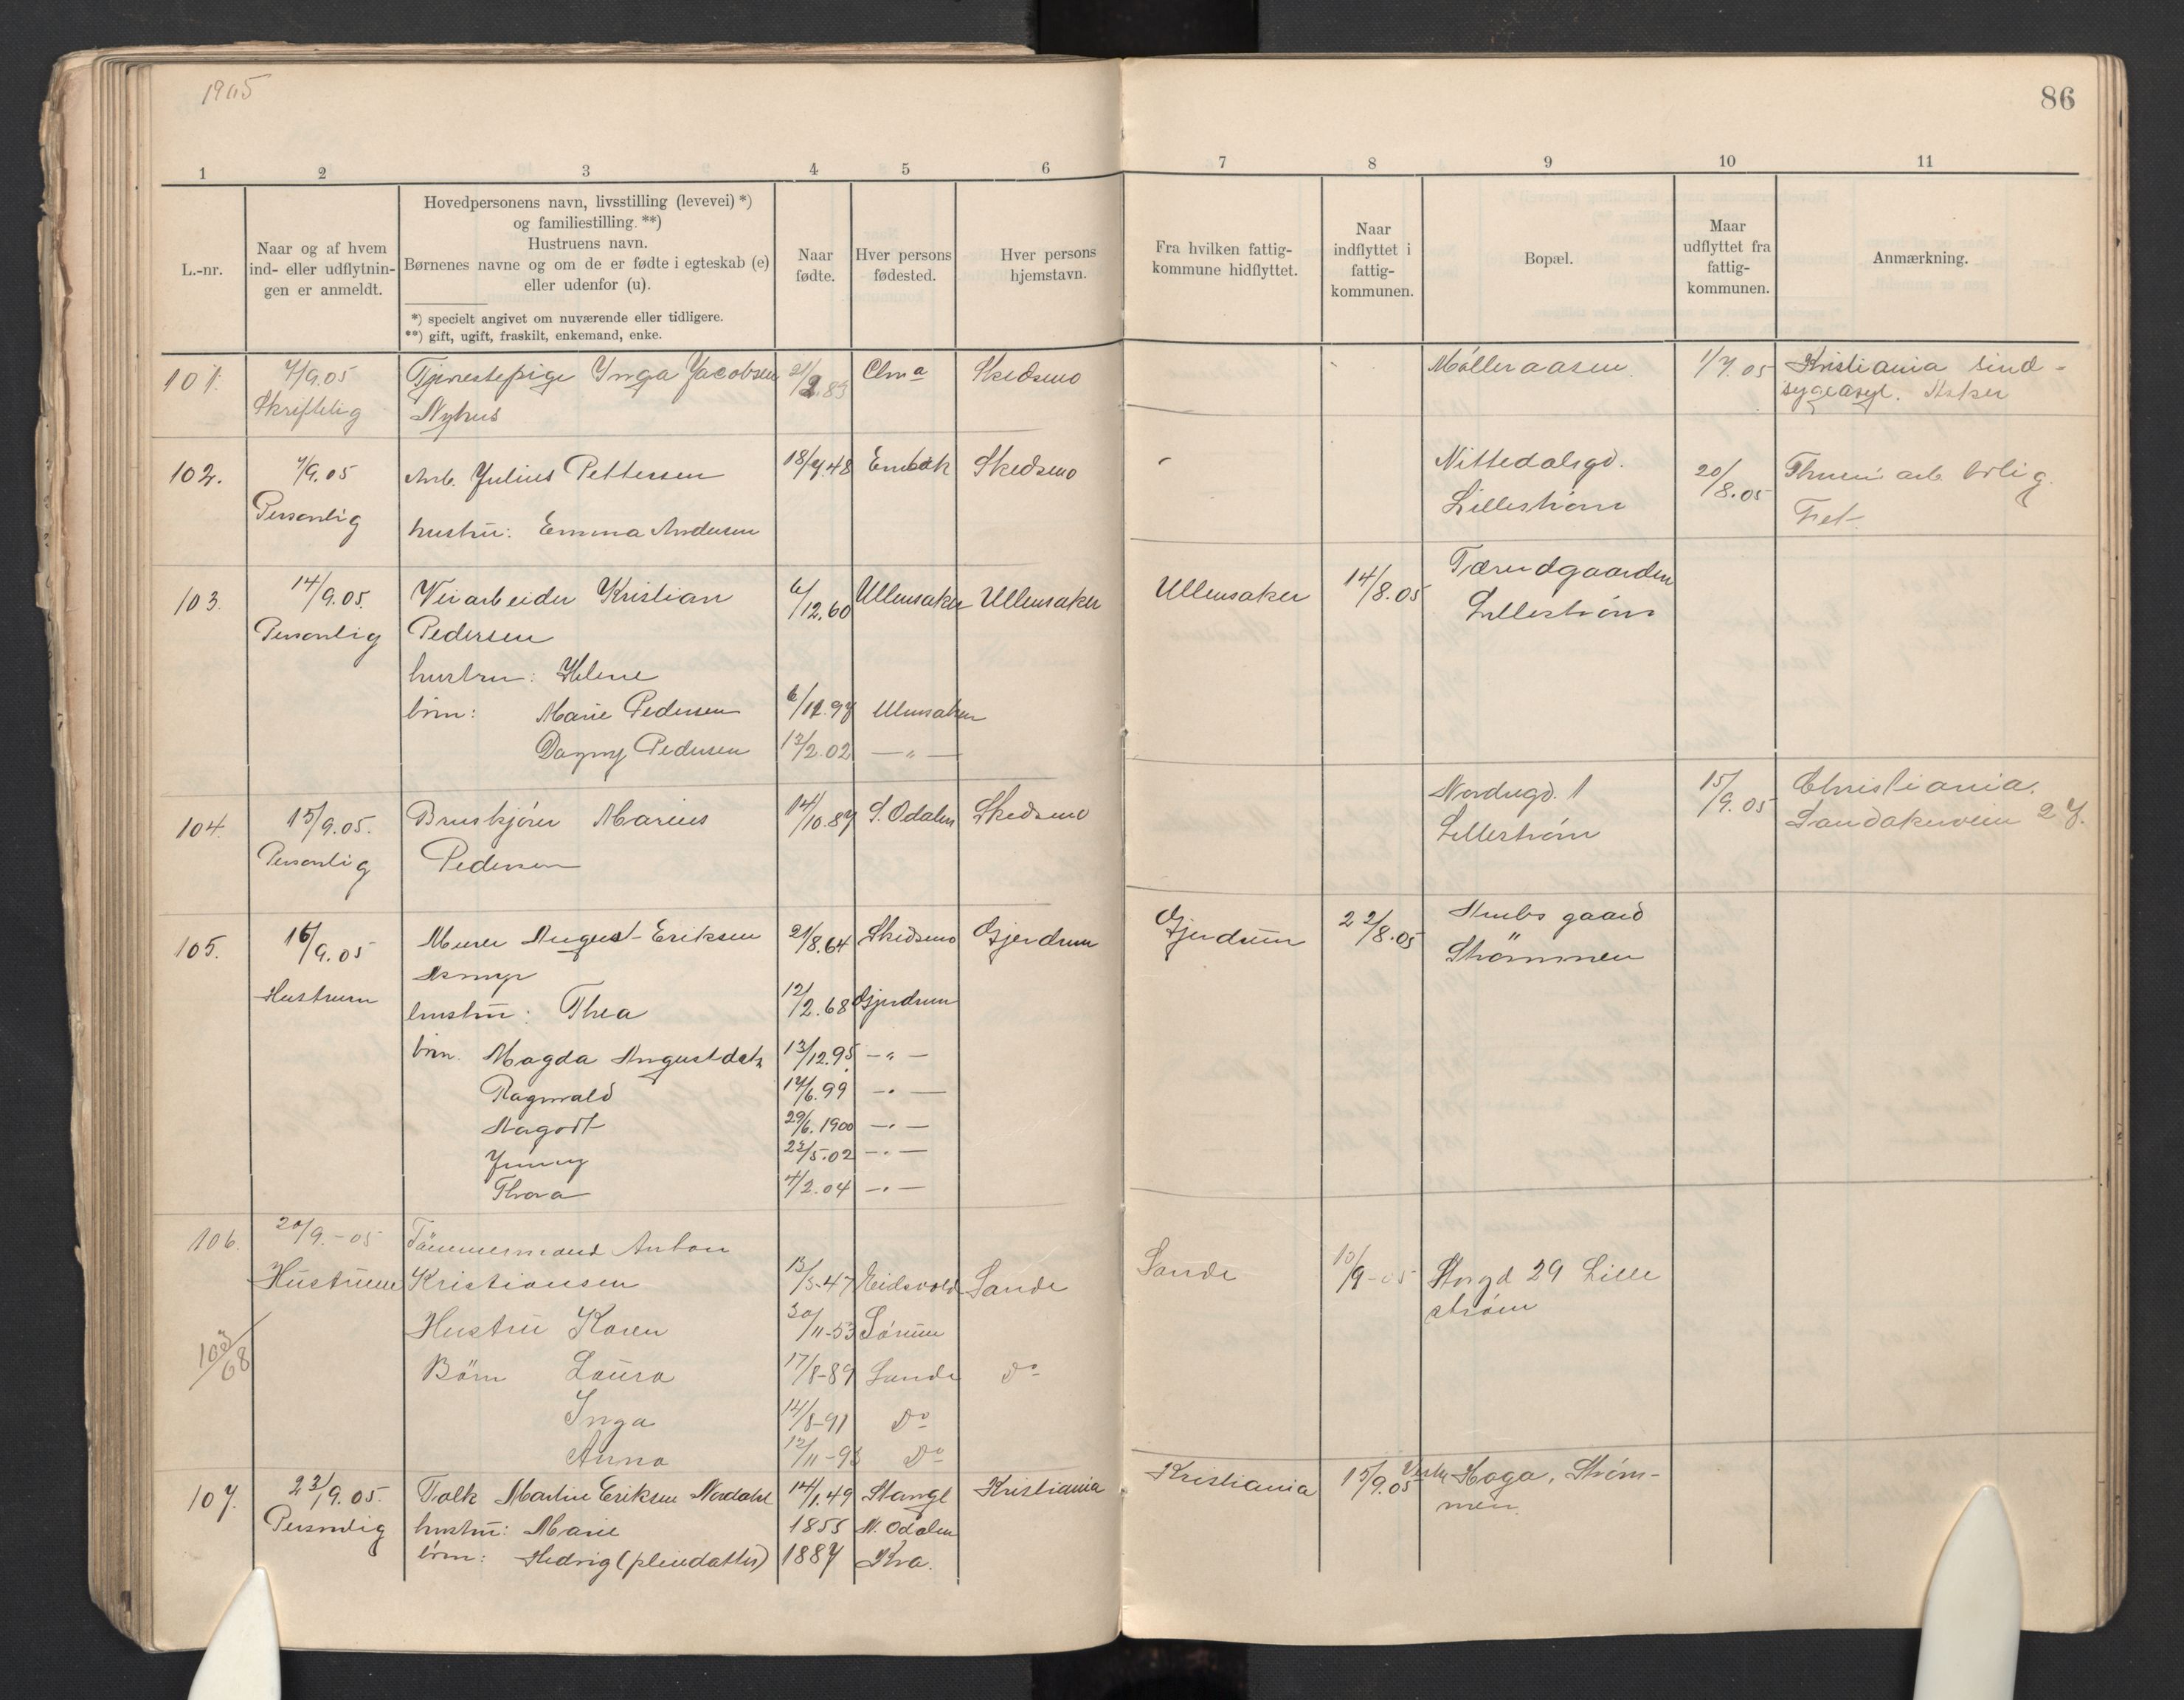 1905
86
1 2 3 4 5 6 7 8 9 10 11
L.-nr.
Naar og af hvem
ind- eller udflytnin-
gen er anmeldt.
Hovedpersonens navn, livsstilling (levevei) *)
og familiestilling. **)
Hustruens navn.
Børnenes navne og om de er fødte i egteskab (e)
eller udenfor (u).
*) specielt angivet om nuværende eller tidligere.
**) gift, ugift, fraskilt, enkemand, enke.
Naar
fødte.
Hver persons
fødested.
Hver persons
hjemstavn.
Fra hvilken fattig-
kommune hidflyttet.
Naar
indflyttet i
fattig-
kommunen.
Bopæl.
Maar
udflyttet fra
fattig-
kommunen.
Anmærkning.
101. 7/9.05 Tjenestepige Inga Jacobsen 21/2.83 Chra Skedsmo Mölleraasen. 1/7.05 Kristiania sind-
Skriftelig Nyhus sygeasyl. Aker
102. 7/9.05 Arb. Julius Pettersen 18/7.48 Enebak Skedsmo Nittedalsgd. 20/8.05 arb.
Personlig hustru: Emma Andersen Lilleström Fet.
103. 14/9.05. Veiarbeider Kristian 6/12.60 Ullensaker Ullensaker Ullensaker 14/8.05 Tærudgaarden
Personlig Pedersen Lilleström
hustru: Helene
börn: Marie Pedersen 6/12.97 Ullensaker
Dagny Pedersen 13/2.02 — " —
104. 15/9.05. Bruskjörer Marius 14/10.87 S. Odalen Skedsmo Nordregd. 1 15/9.05 Christiania.
Personlig Pedersen Lilleström Sandakerveien 27.
105. 16/9.05 Murer August Eriksen 21/8.64 Skedsmo Gjerdrum Gjerdrum 22/8.05 Stubs gaard
Asmyr Strömmen
Hustruen hustru: Thea 12/2.68 Gjerdrum
börn. Magda Augustdatr. 13/12.95 — " —
Ragnvald 14/6.99 — " —
Aagodt 29/6.1900 — " —
Jenny 22/5.02 — " —
Thora 4/2.04 — " —
106. 20/9.-05 Tömmermand Anton
Hustruen Kristiansen 13/5-47 Eidsvold Sande Sande 10/9-05 Storgd 29 Lille
ström
Hustru Karen 30/11-53 Sörum
Börn Laura 17/8-89 Sande Do
Inga 14/8-91 Do
Anna 12/11-93 Do
107. 23/9.05. Tolk Martin Eriksen Nordahl 14/1.49 Stange Kristiania Kristiania 15/9.05 Vestre Haga, Ström-
Personlig hustru: Marie 1855 N. Odalen men.
börn: Hedvig (pleiedatter) 1887 Kra.